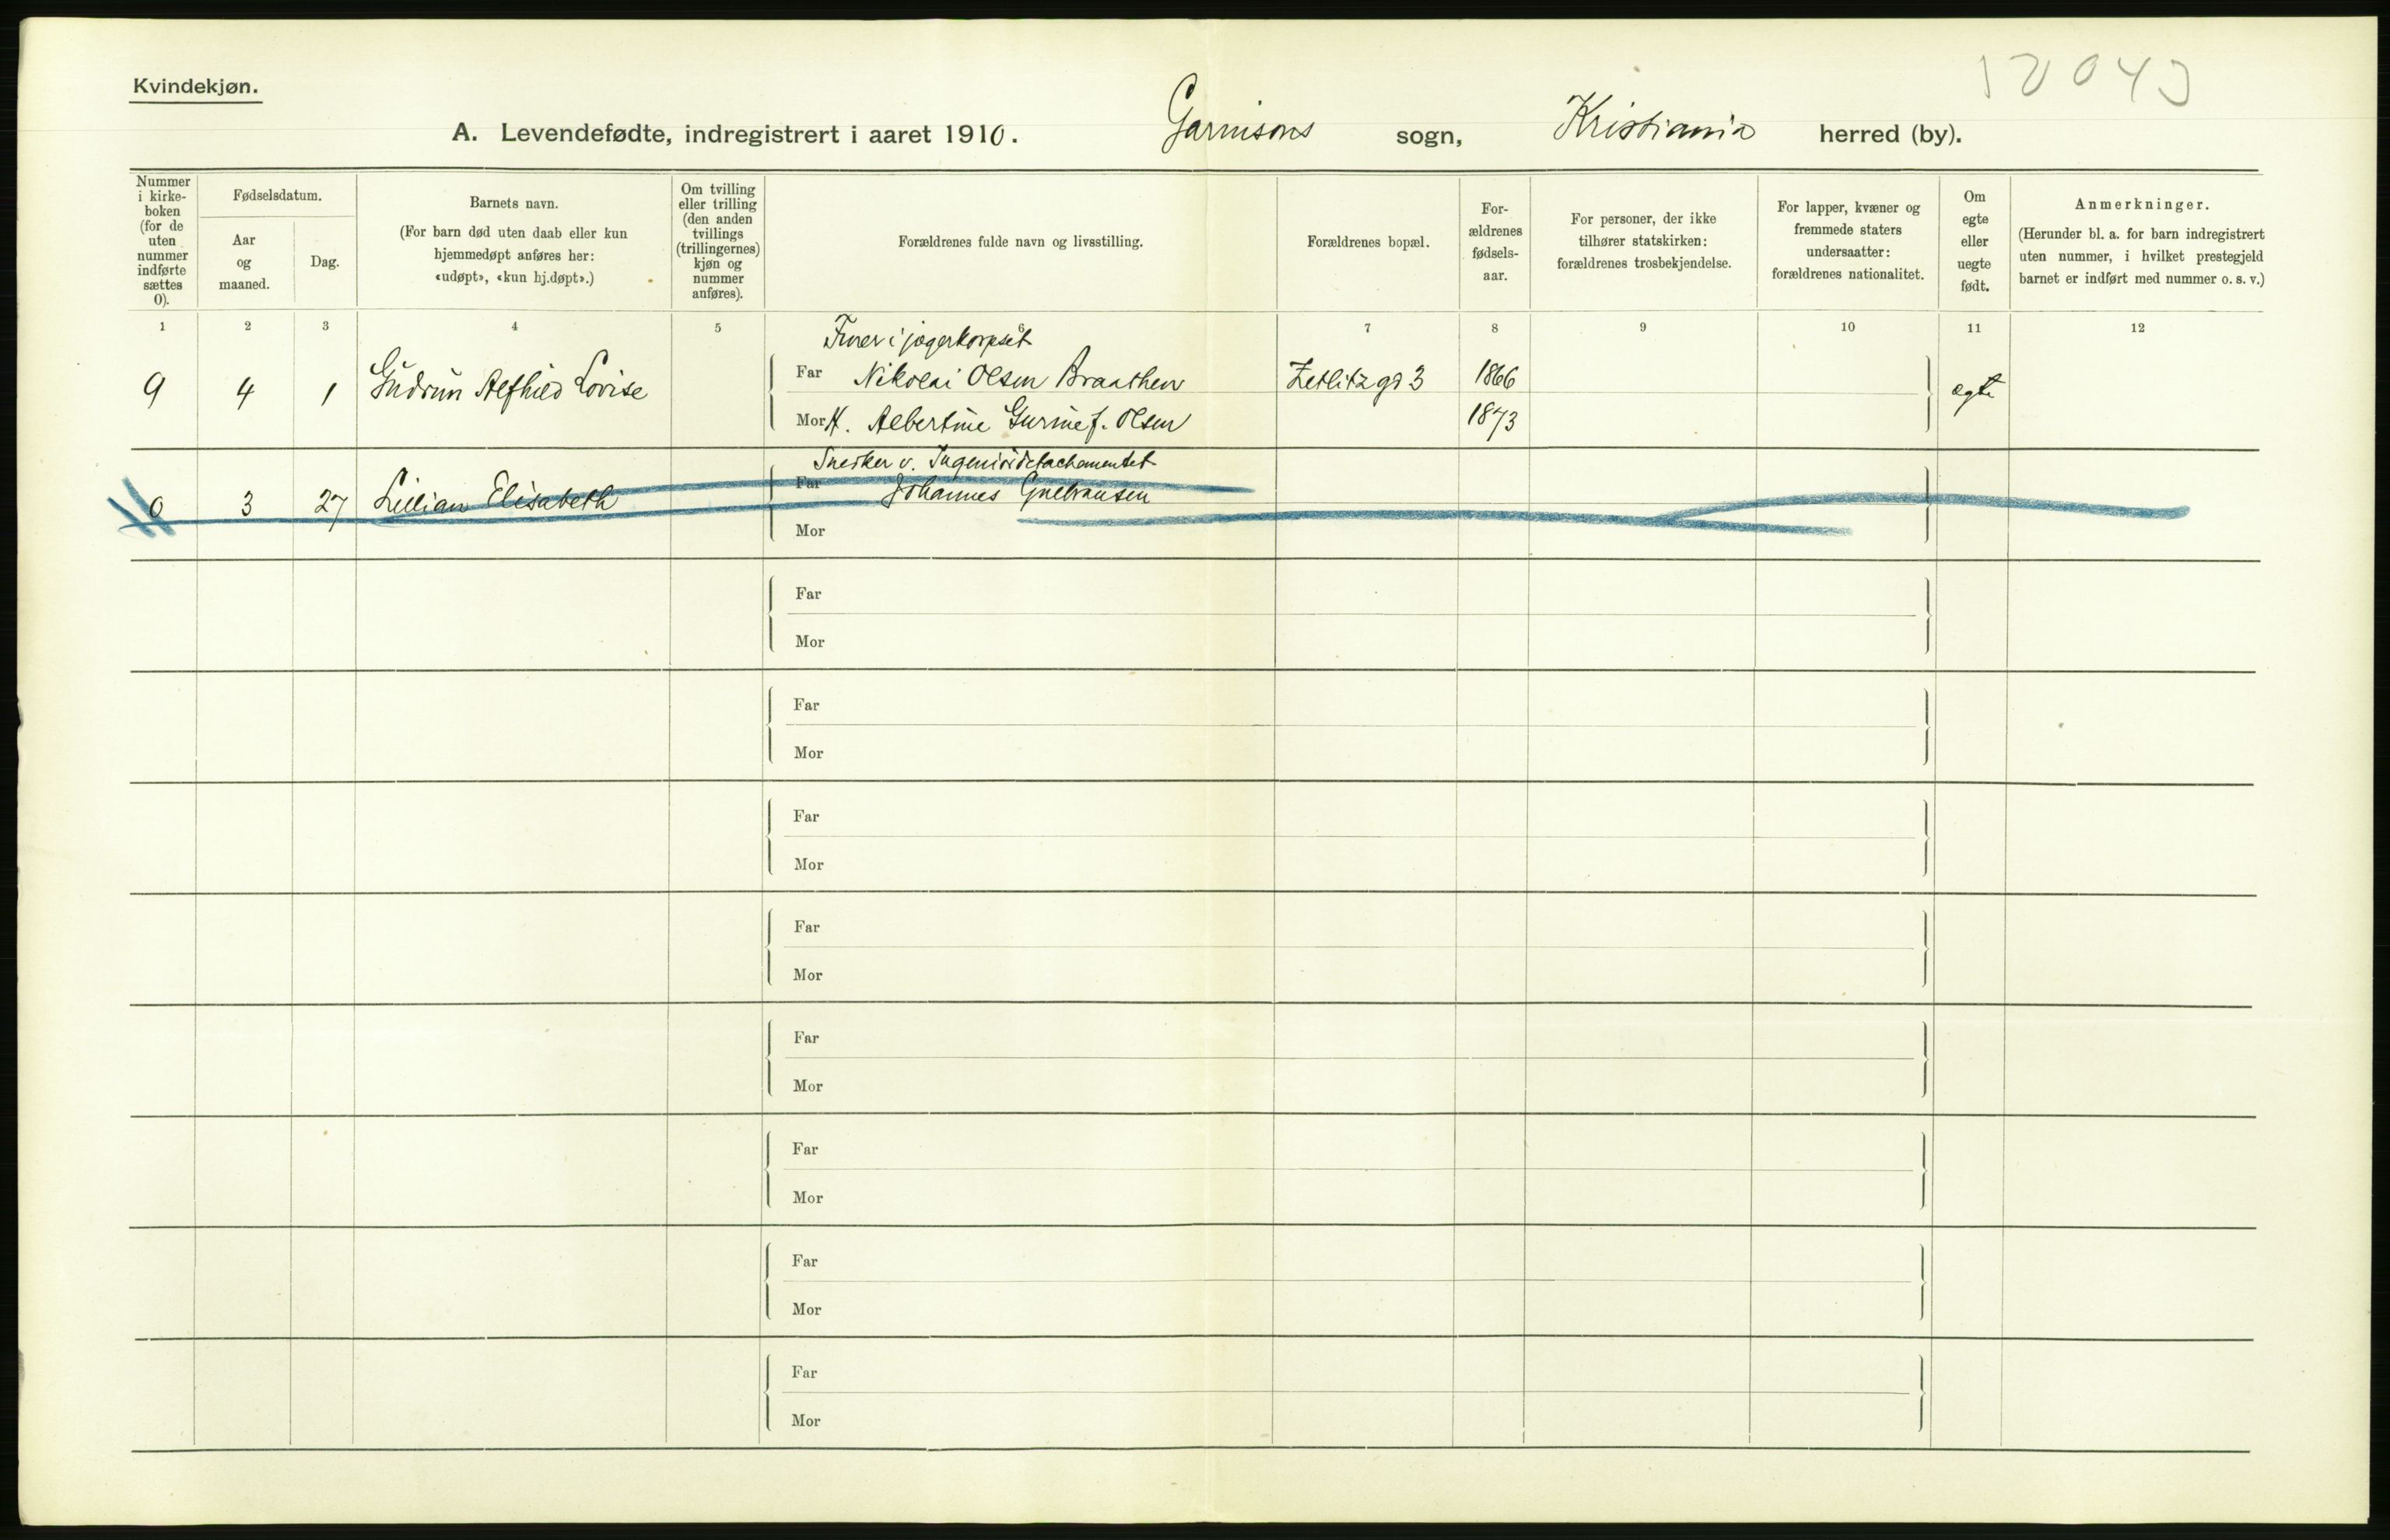 Kvindekjøn.
12043
A. Levendefødte, indregistrert i aaret 1910. Garnisons sogn, Kristiania herred (by).
Nummer i kirke-boken (for de uten nummer indførte sættes 0).
Fødselsdatum.
Aar og maaned.
Dag.
Barnets navn.
(For barn død uten daab eller kun hjemmedøpt anføres her: «udøpt», «kun hj.døpt».)
Om tvilling eller trilling (den anden tvillings (trillingernes) kjøn og nummer anføres).
Forældrenes fulde navn og livsstilling.
Forældrenes bopæl.
For-ældrenes fødsels-aar.
For personer, der ikke tilhører statskirken: forældrenes trosbekjendelse.
For lapper, kvæner og fremmede staters undersaatter: forældrenes nationalitet.
Om egte eller uegte født.
Anmerkninger.
(Herunder bl. a. for barn indregistrert uten nummer, i hvilket prestegjeld barnet er indført med nummer o. s. v.)
1 2 3 4 5 6 7 8 9 10 11 12
Furer i jægerkorpset
9 4 1 Gudrun Alfhild Lovise Far Nikolai Olsen Braathen Zetlitz gd 3 1866 egte
Mor H. Albertine Gurine f. Olsen 1873
Snedker v. Ingeniørdetachementet
0 3 27 Lillian Elisabeth Far Johannes Gulbransen
Mor
Far
Mor
Far
Mor
Far
Mor
Far
Mor
Far
Mor
Far
Mor
Far
Mor
Far
Mor